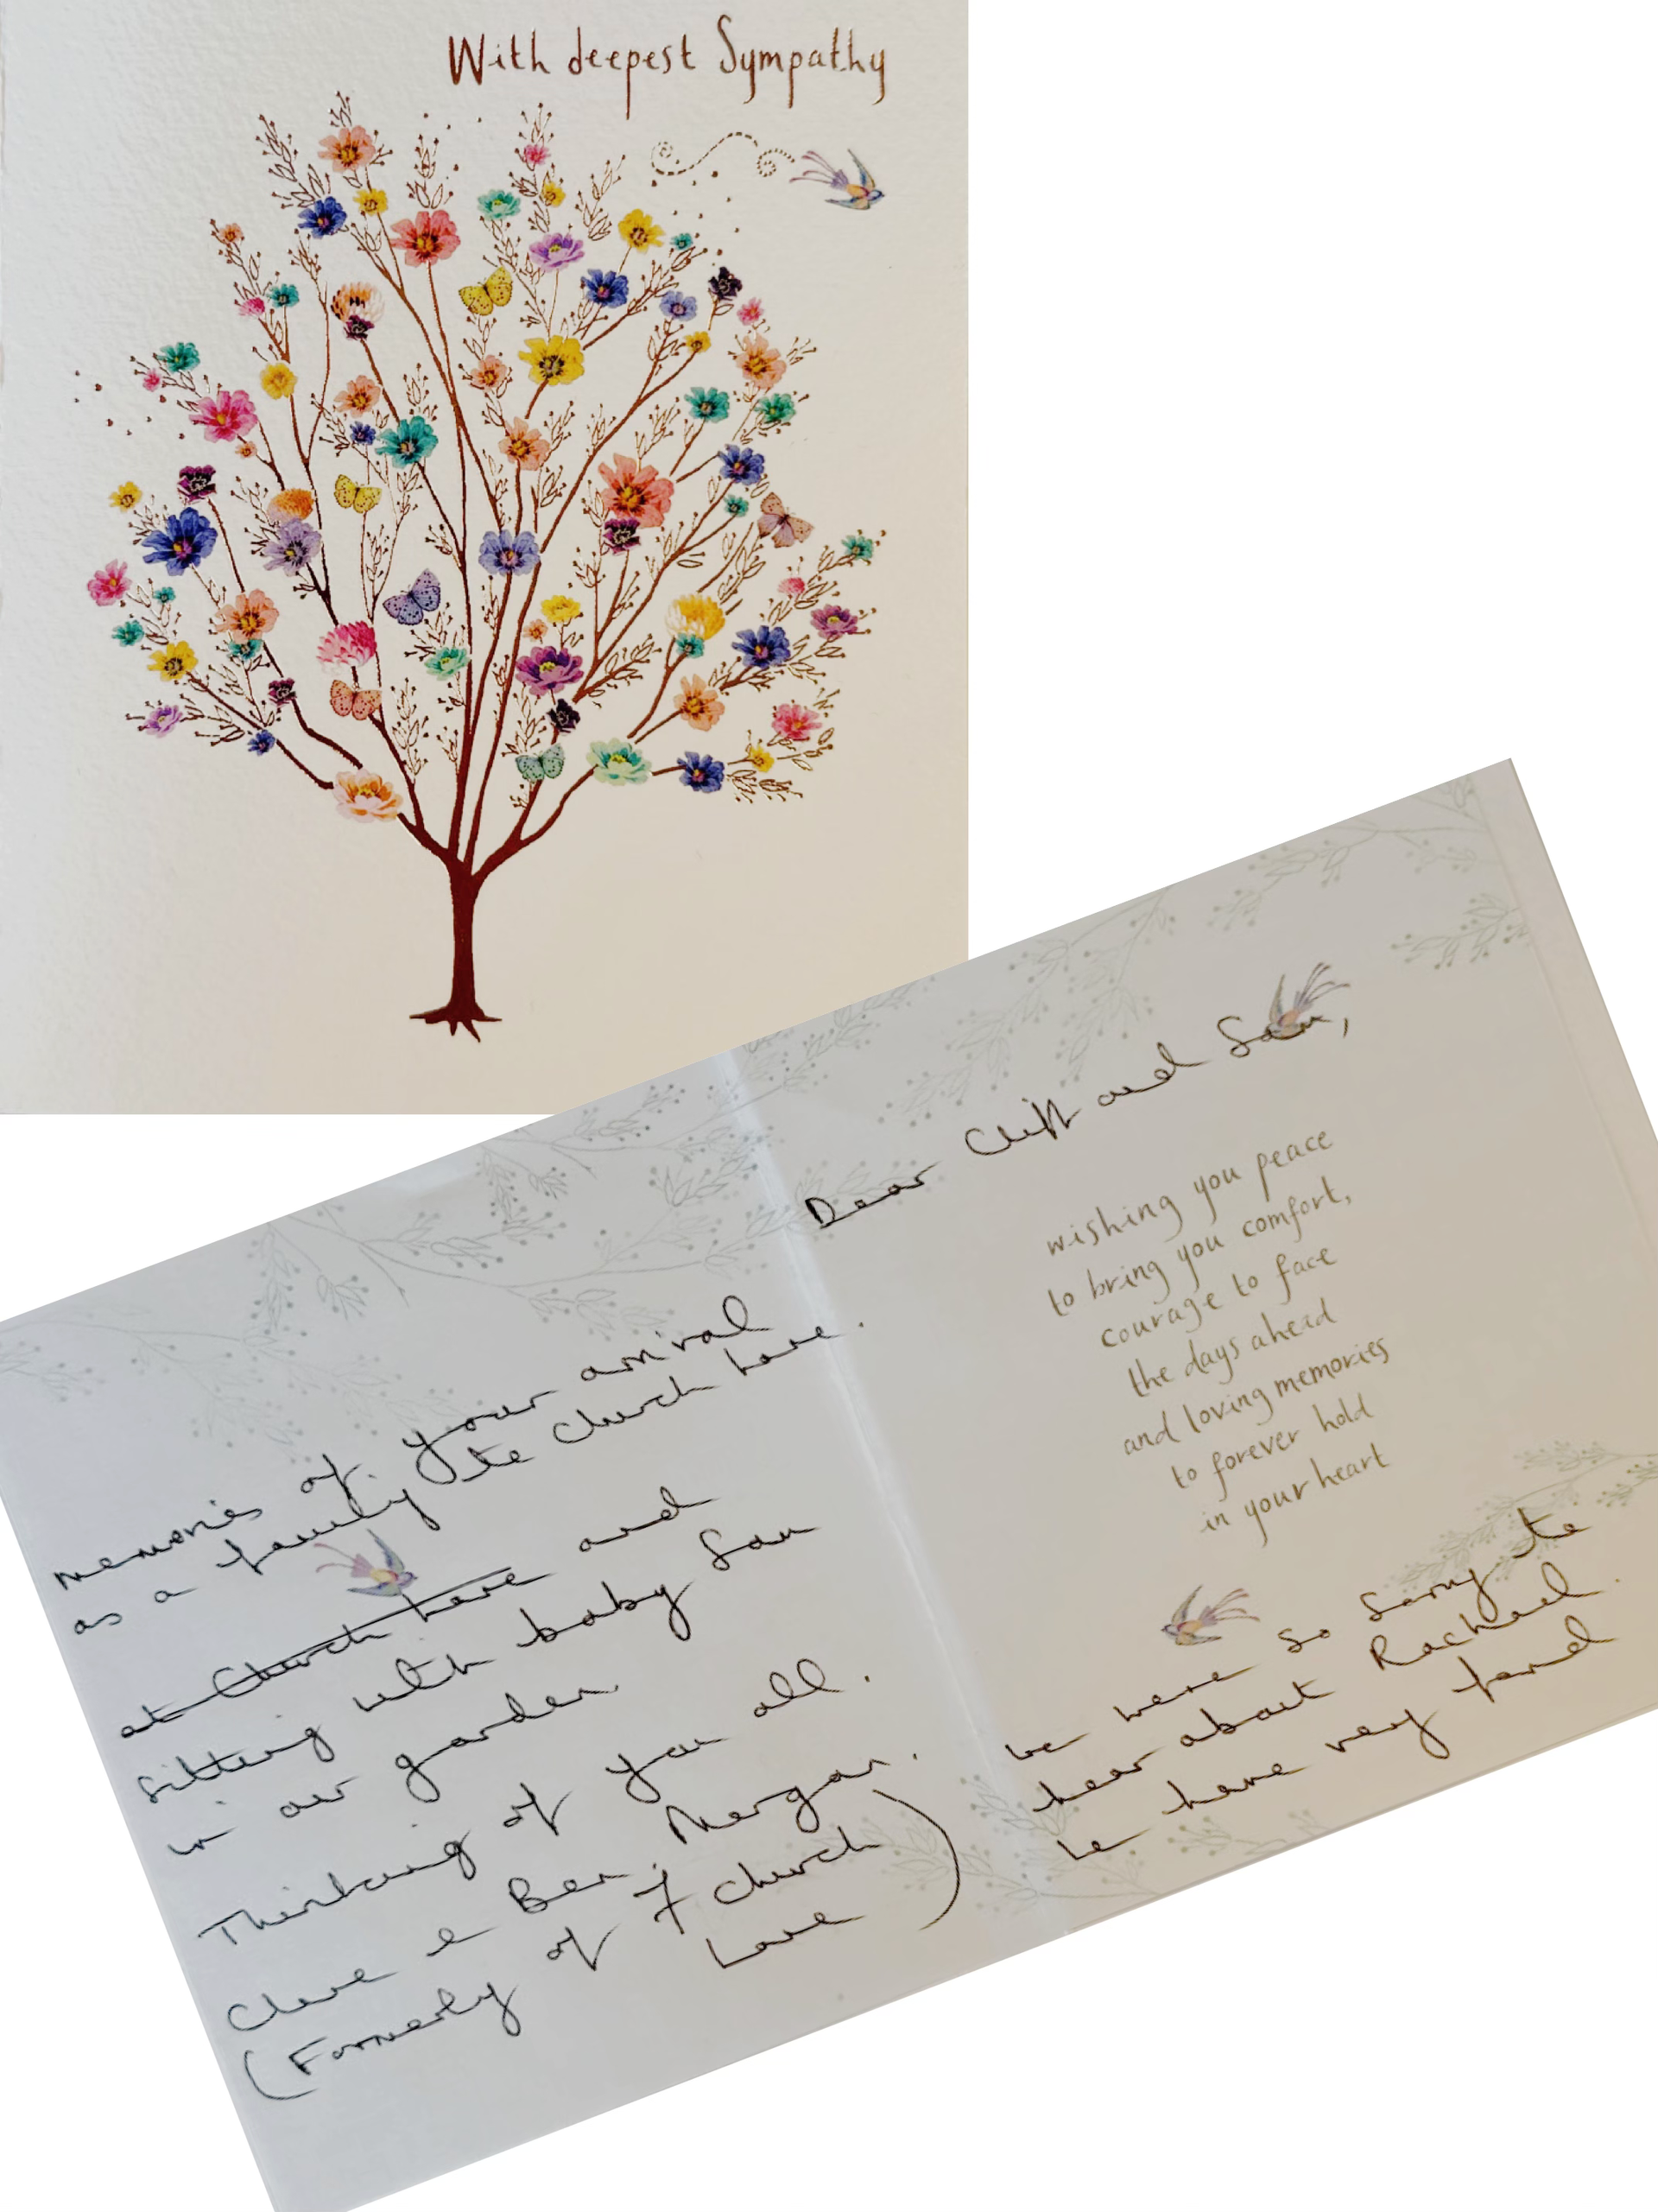 With deepest Sympathy
Dear Cliff and Sam,
wishing you peace
to bring you comfort,
courage to face
the days ahead
and loving memories
to forever hold
in your heart
We were so sorry to
hear about Rachael.
We have very fond
memories of your arrival
as a family to Church here.
at Church here and
sitting with baby Sam
in our garden.
Thinking of you all.
Clare & Ben Morgan.
(Formerly of 7 Church
Lane)